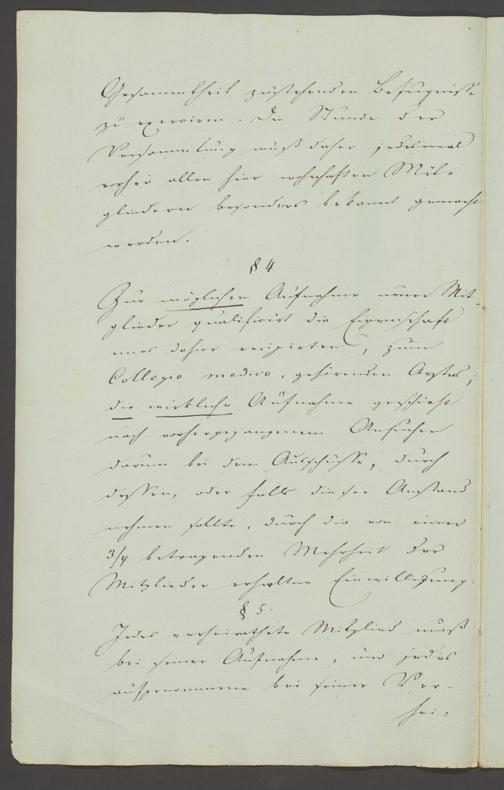 Gesammtheit zustehenden Befugnisse
zu exerciren. Die Stunde der
Versammlung muß daher jedesmal
vorher allen hier wohnhaften Mit-
gliedern besonders bekannt gemacht
werden.
§ 4
Zur möglichen Aufnahme neuer Mit-
glieder qualificirt die Eigenschaft
eines dahier recipirten, zum
Collegio medico, gehörenden Arztes;
die wirkliche Aufnahme geschieht
nach vorhergegangenem Ansuchen
darum bei dem Ausschusse, durch
dessen, oder falls dieser Anstand
nehmen sollte, durch die von einer
3/4 betragenden Mehrheit der
Mitglieder erhaltene Einwilligung.
§ 5.
Jedes verheirathete Mitglied muß
bei seiner Aufnahme, und jedes
aufgenommene bei seiner Ver-
hei-